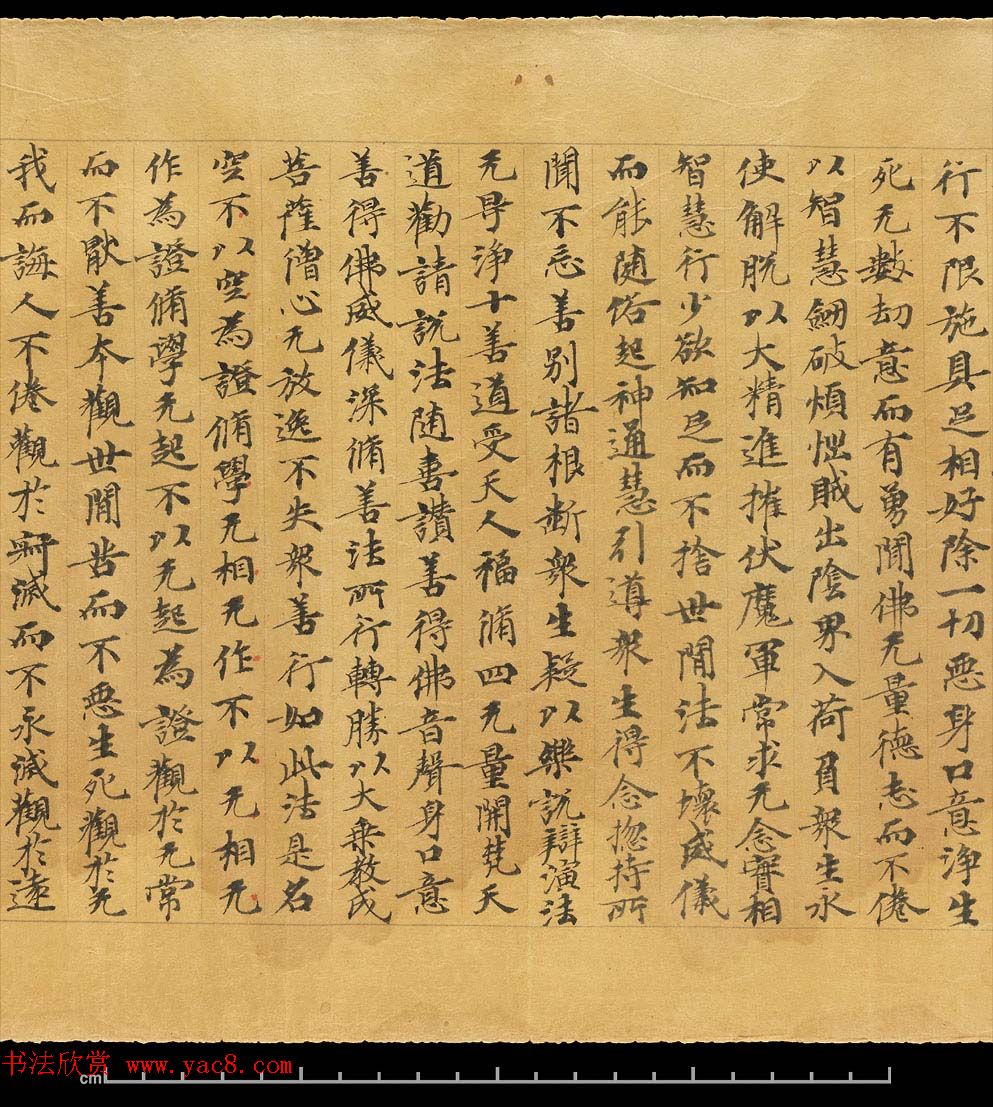 行不限施具足相好除一切惡身口意淨生
死无數劫意而有勇聞佛无量德志而不倦
以智慧劒破煩惱賊出陰界入荷負衆生永
使解脫以大精進摧伏魔軍常求无念實相
智慧行少欲知足而不捨世閒法不壞威儀
而能随俗起神通慧引導衆生得念捴持所
聞不忘善别諸根断衆生疑以樂說辯演法
无㝵淨十善道受天人福脩四无量開梵天
道勸請說法随喜讚善得佛音聲身口意
善得佛威儀深脩善法所行轉勝以大乗教成
菩薩僧心无放逸不失衆善行如此法是名
空不以空為證脩學无相无作不以无相无
作為證脩學无起不以无起為證觀於无常
而不厭善本觀世閒苦而不惡生死觀於无
我而誨人不倦觀於寂滅而不永滅觀於遠
书法欣赏 www.yac8.com
cm